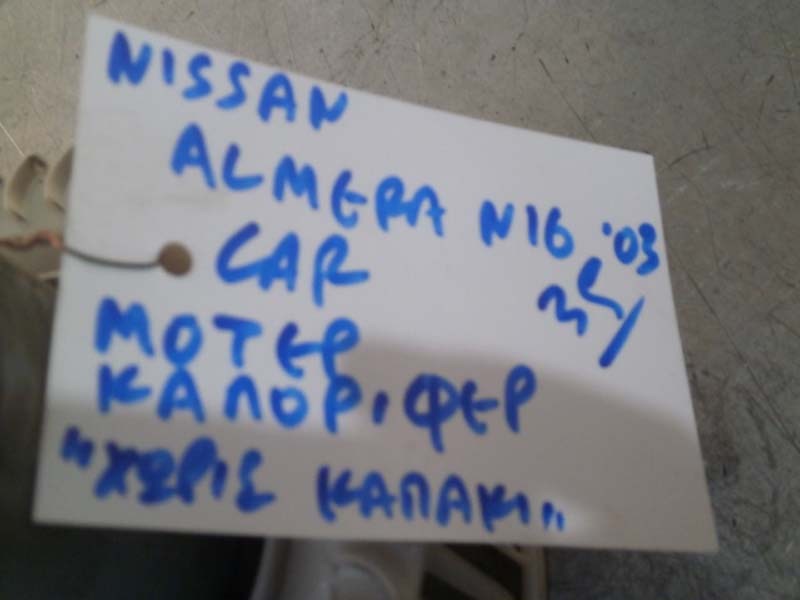 NISSAN
ALMERA N16 '03
CAR
ΜΟΤΕΡ
ΚΑΛΟΡΙΦΕΡ
"ΧΩΡΙΣ ΚΑΠΑΚΙ"